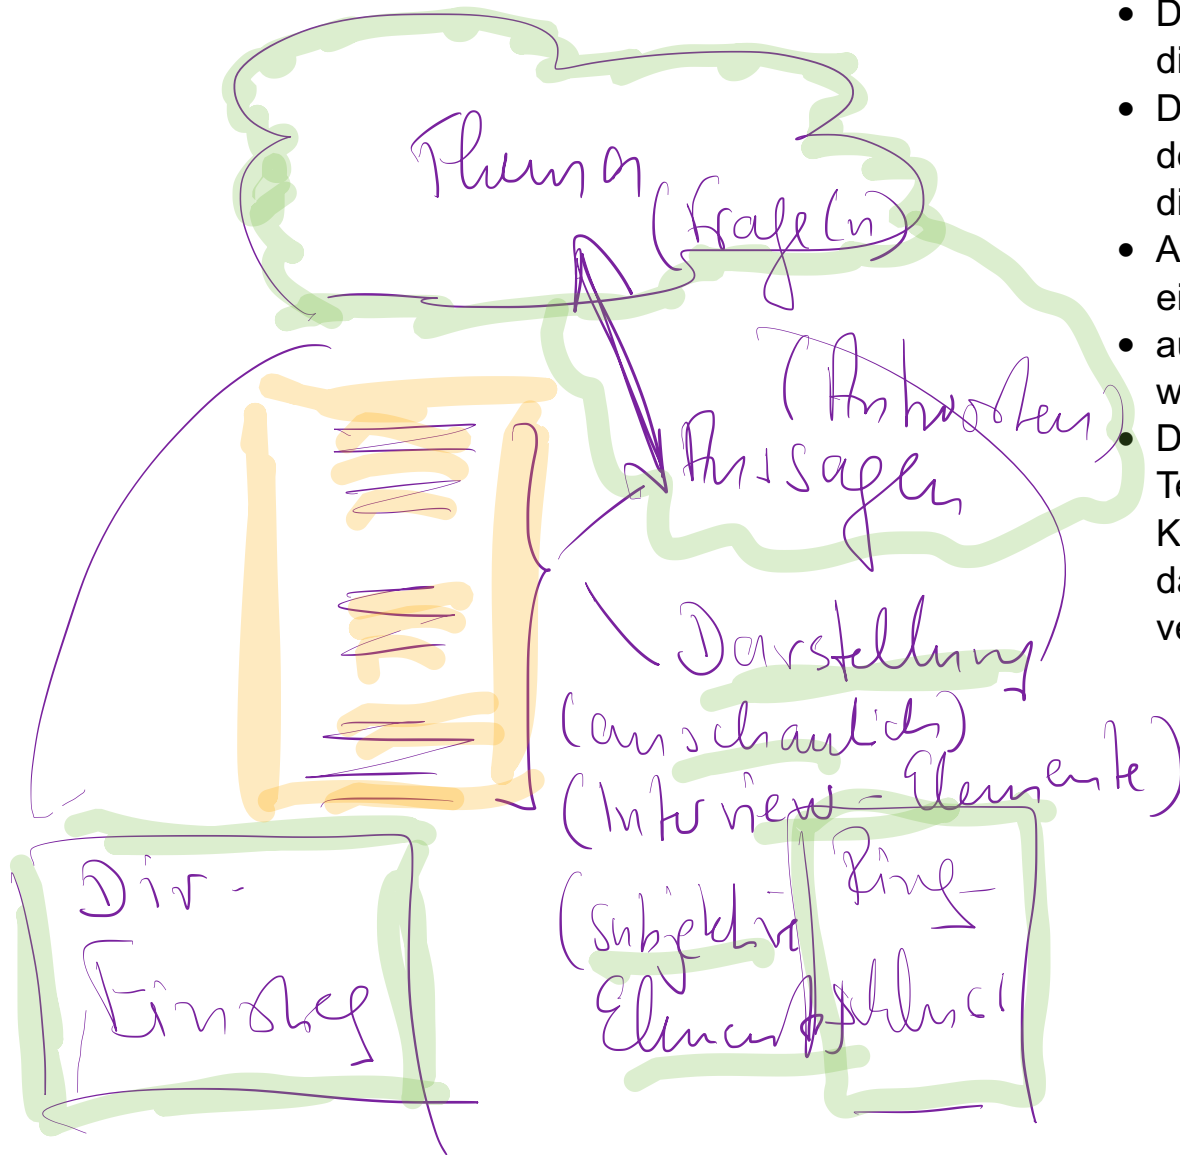 Thema
(Frage(n)
(Antworten)
Aussagen
Darstellung
(anschaulich)
(Interview-Elemente)
(subjektive
Elemente
Dir-
Einstieg
Ring-
schluss
D
di
D
de
di
A
ei
au
w
D
Te
K
da
ve